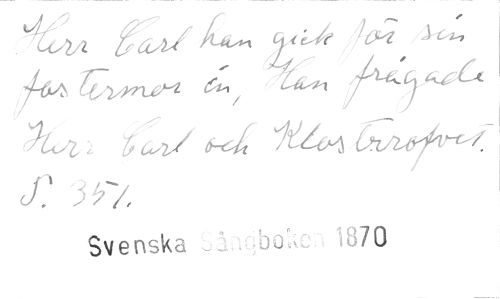 Herr Carl han gick för sin
fostermor in, Han frågade
Herr Carl och Klosterrofvet.
S. 351.
Svenska Sångboken 1870